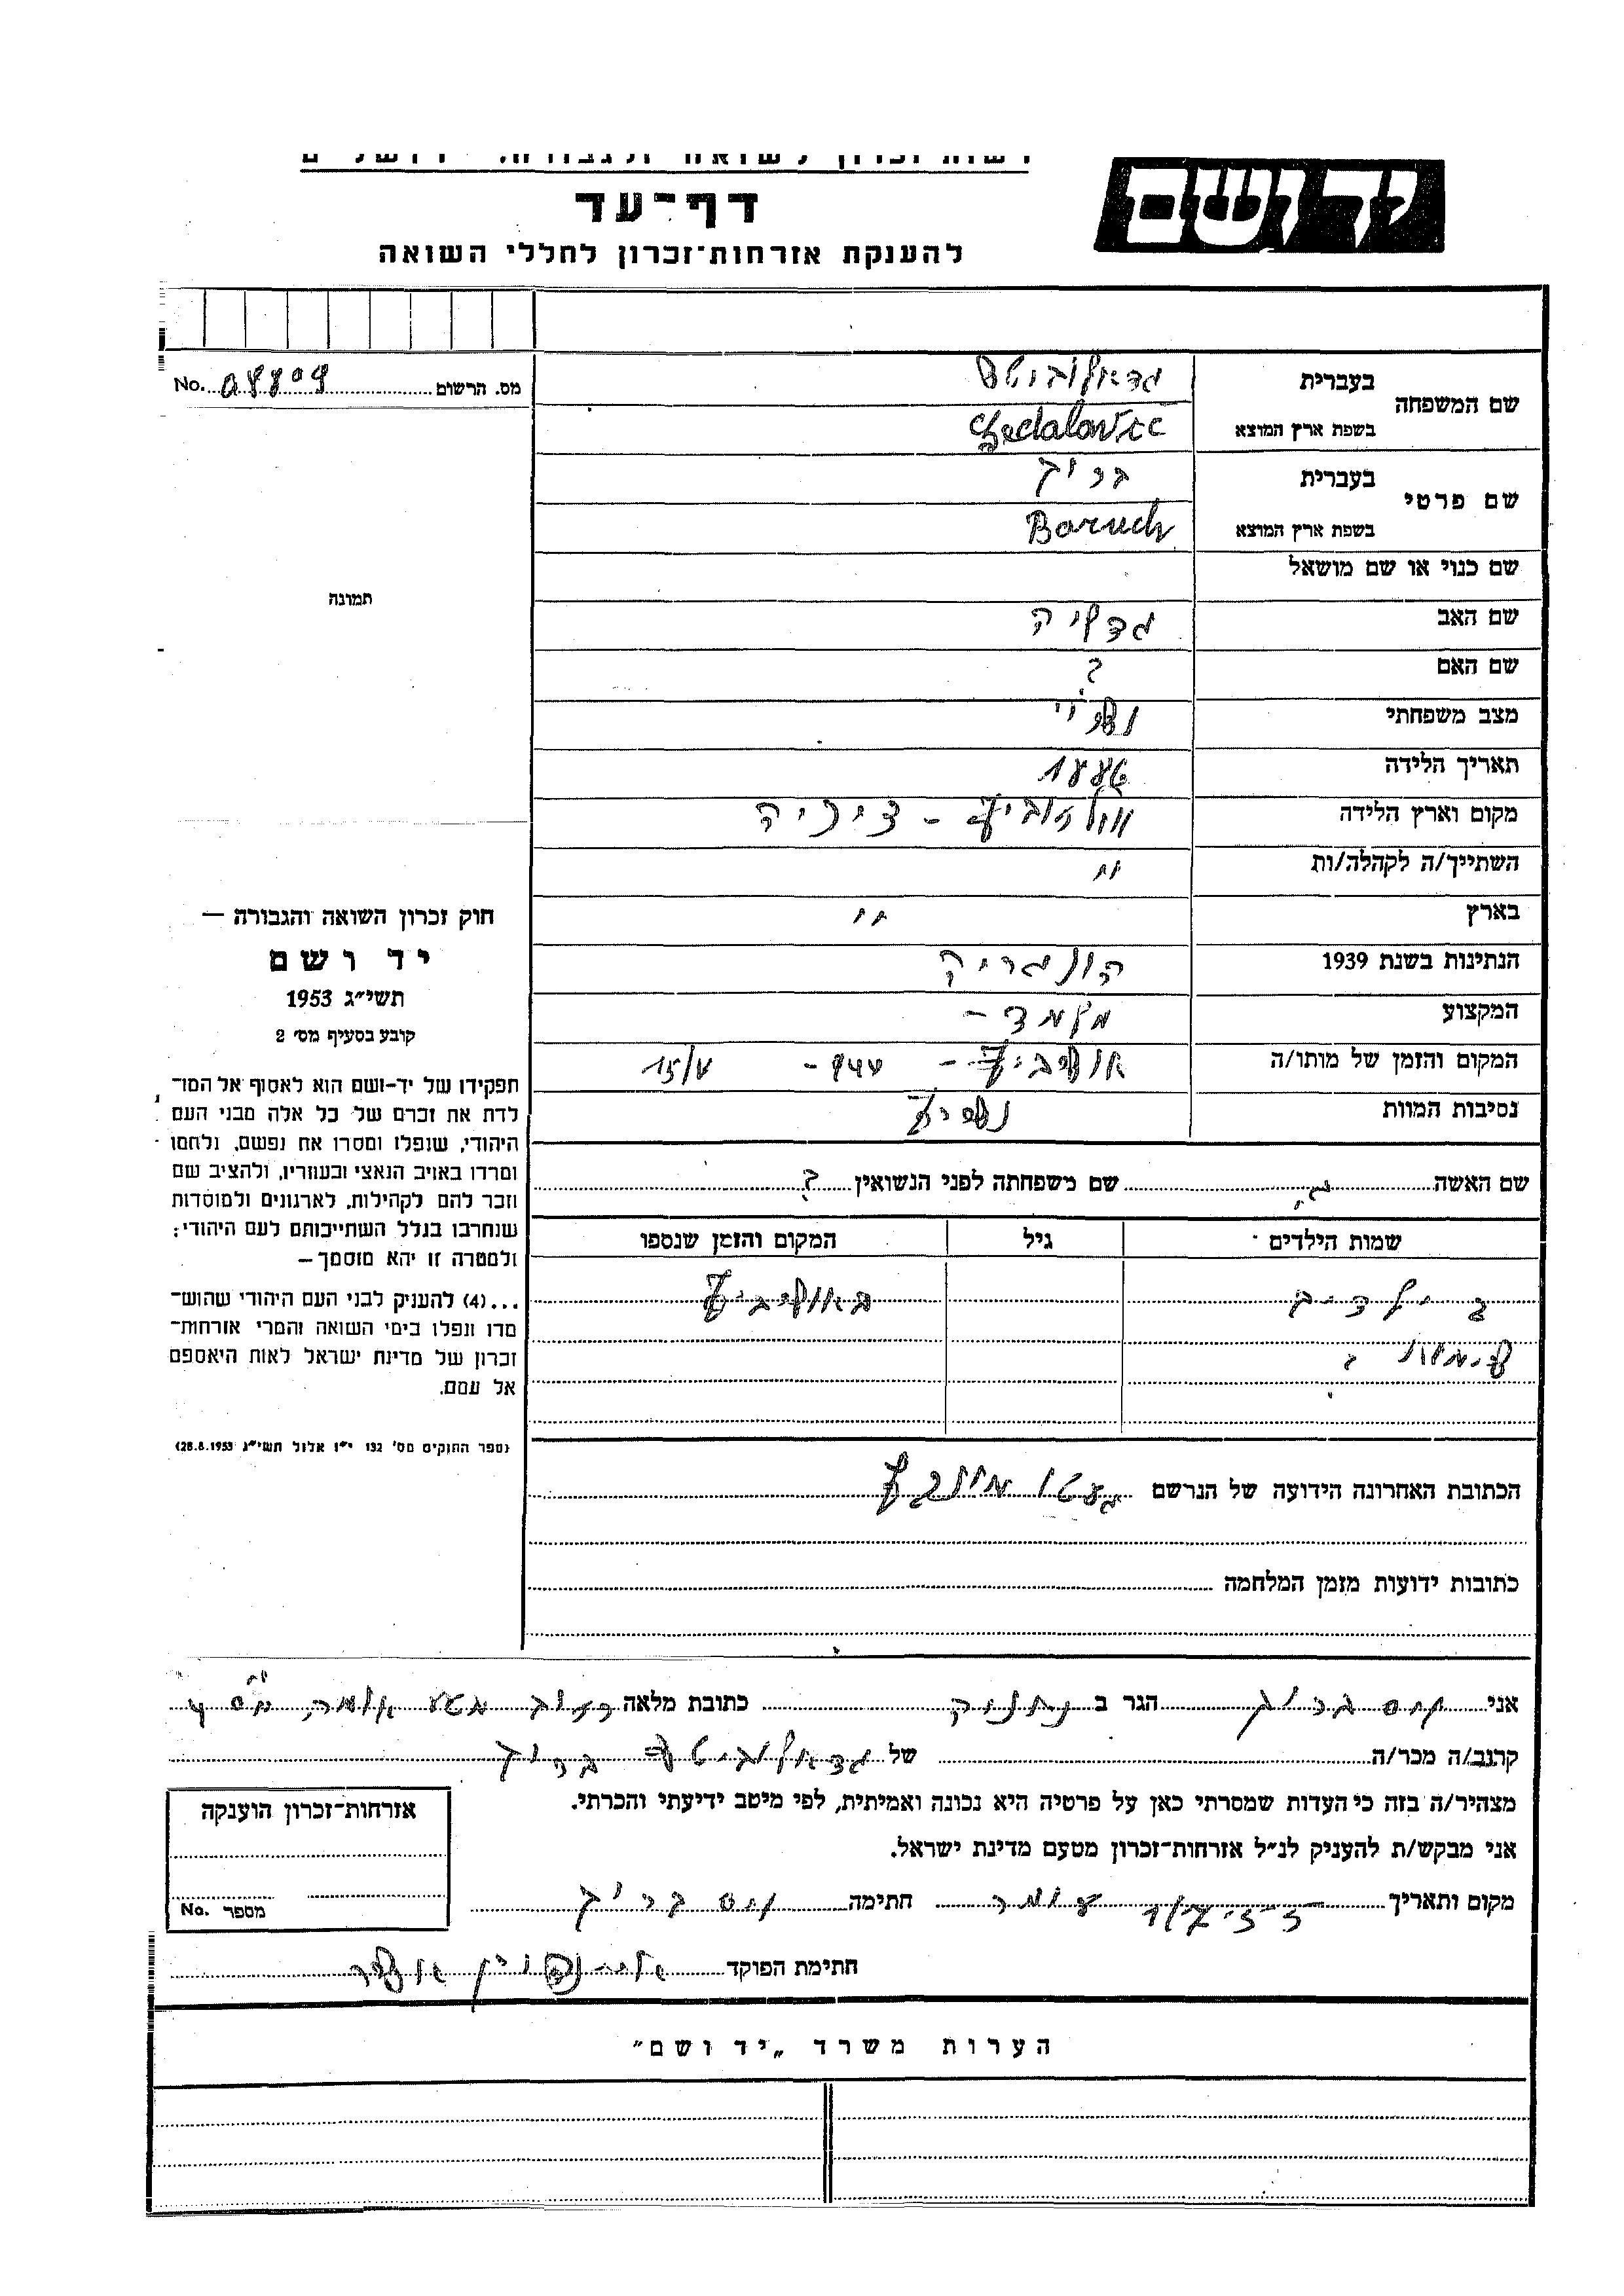 יד ושם
דף-עד
להענקת אזרחות-זכרון לחללי השואה
מס. הרשום No. 08809
שם המשפחה
בעברית גדאלוביטש
בשפת ארץ המוצא Gedalovic
שם פרטי
בעברית ברוך
בשפת ארץ המוצא Boruch
שם כנוי או שם מושאל
שם האב גדליה
שם האם ?
מצב משפחתי נשוי
תאריך הלידה
מקום וארץ הלידה
השתייך/ה לקהלה/ות "
בארץ "
הנתינות בשנת 1939 הונגריה
המקצוע מלמד -
המקום והזמן של מותו/ה אושביץ - 944 - 15/
נסיבות המוות
שם האשה שם משפחתה לפני הנשואין ?
שמות הילדים גיל המקום והזמן שנספו
ילדים באושביץ
שמות ?
הכתובת האחרונה הידועה של הנרשם געטו
כתובות ידועות מזמן המלחמה
תמונה
חוק זכרון השואה והגבורה —
יד ושם
תשי״ג 1953
קובע בסעיף מס׳ 2
תפקידו של יד-ושם הוא לאסוף אל המו־
לדת את זכרם של כל אלה מבני העם
היהודי, שנפלו ומסרו את נפשם, נלחמו
ומרדו באויב הנאצי ובעוזריו, ולהציב שם
וזכר להם לקהילות, לארגונים ולמוסדות
שנחרבו בגלל השתייכותם לעם היהודי;
ולמטרה זו יהא מוסמך—
...(4) להעניק לבני העם היהודי שהוש־
מדו ונפלו בימי השואה והמרי אזרחות־
זכרון של מדינת ישראל לאות היאספם
אל עמם.
(ספר החוקים מס׳ 132 י״ז אלול תשי״ג 28.8.1953)
אני ברוך הגר ב נתניה כתובת מלאה רחוב
קרוב/ה מכר/ה של גדאלוביטש ברוך
מצהיר/ה בזה כי העדות שמסרתי כאן על פרטיה היא נכונה ואמיתית, לפי מיטב ידיעתי והכרתי.
אני מבקש/ת להעניק לנ״ל אזרחות-זכרון מטעם מדינת ישראל.
מקום ותאריך חתימה ברוך
חתימת הפוקד
אזרחות-זכרון הוענקה
מספר No.
הערות משרד „יד ושם״